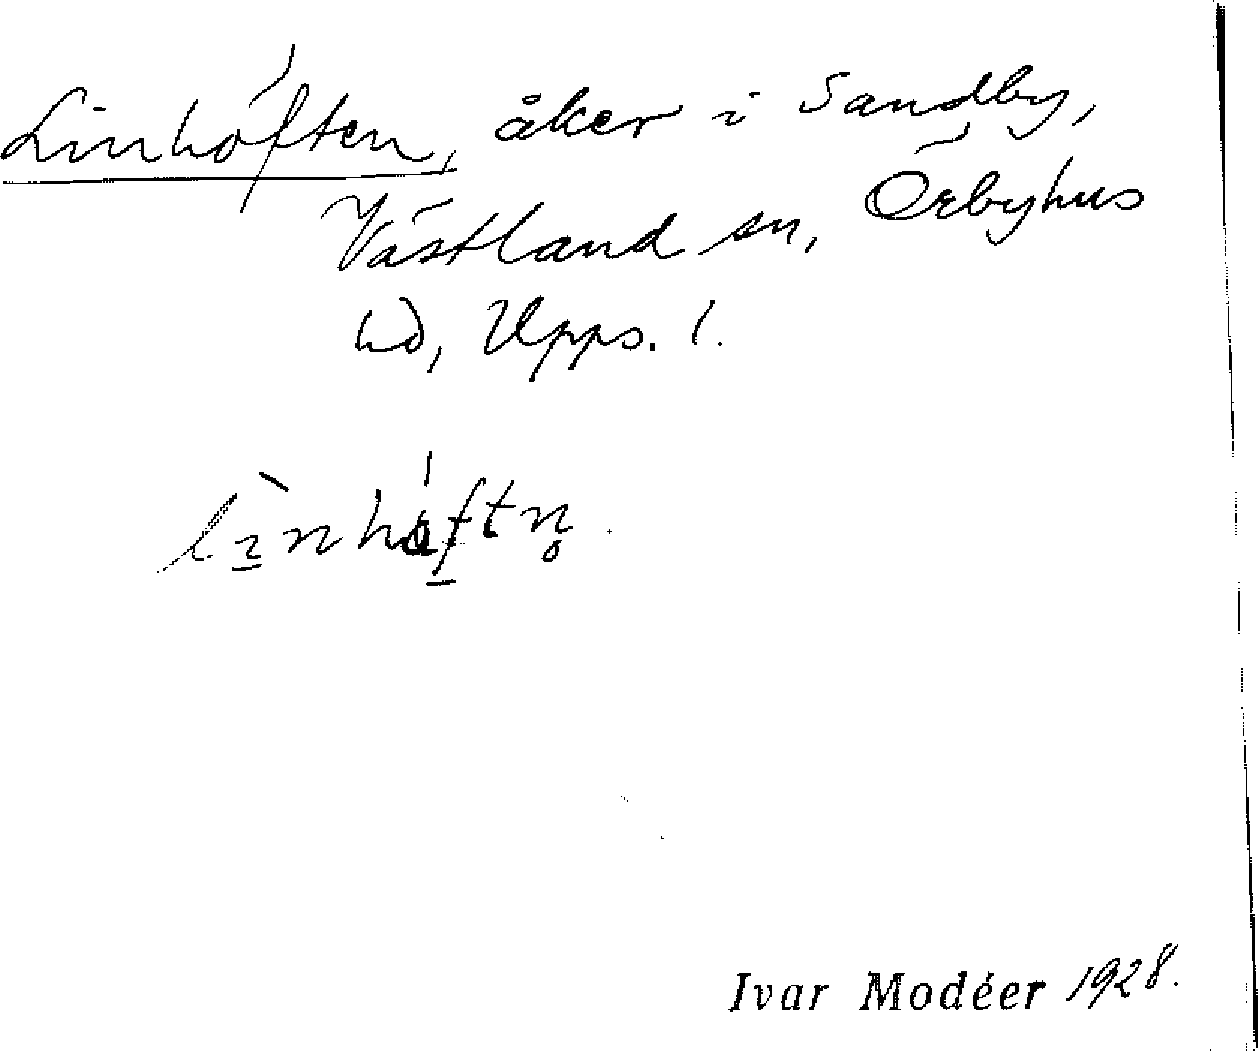 Linhöften, åker i Sandby,
Västland sn, Örbyhus
hd, Upps. l.
lìnháftn̥.
Ivar Modéer 1928.